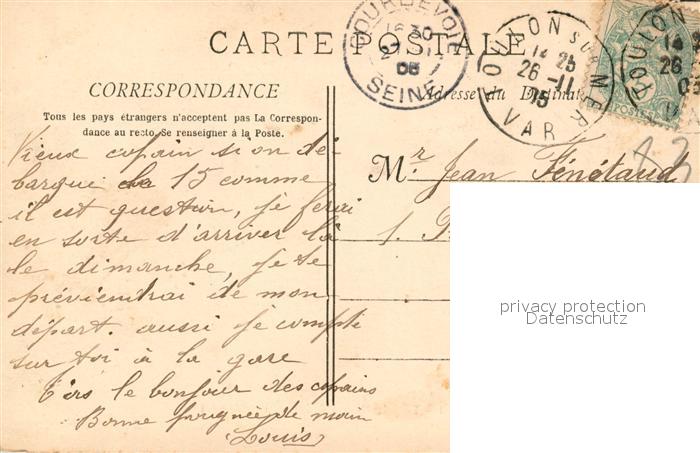 CARTE POSTALE
CORRESPONDANCE
Tous les pays étrangers n'acceptent pas La Correspon-
dance au recto. Se renseigner à la Poste.
Adresse du Destinataire
COURBEVOIE
16 30
27 - 11
05
SEINE
TOULON SUR MER
14 25
26 - 11
05
VAR
TOULON
14 25
26
05
POSTES
Vieux copain si on dé
barque le 15 comme
il est question, je ferai
en sorte d'arriver là
le dimanche, je te
préviendrai de mon
départ. aussi je compte
sur toi à la gare
le bonjour des copains
Bonne poignée de main
Louis
Mr. Jean Fénétaud
1.
privacy protection
Datenschutz